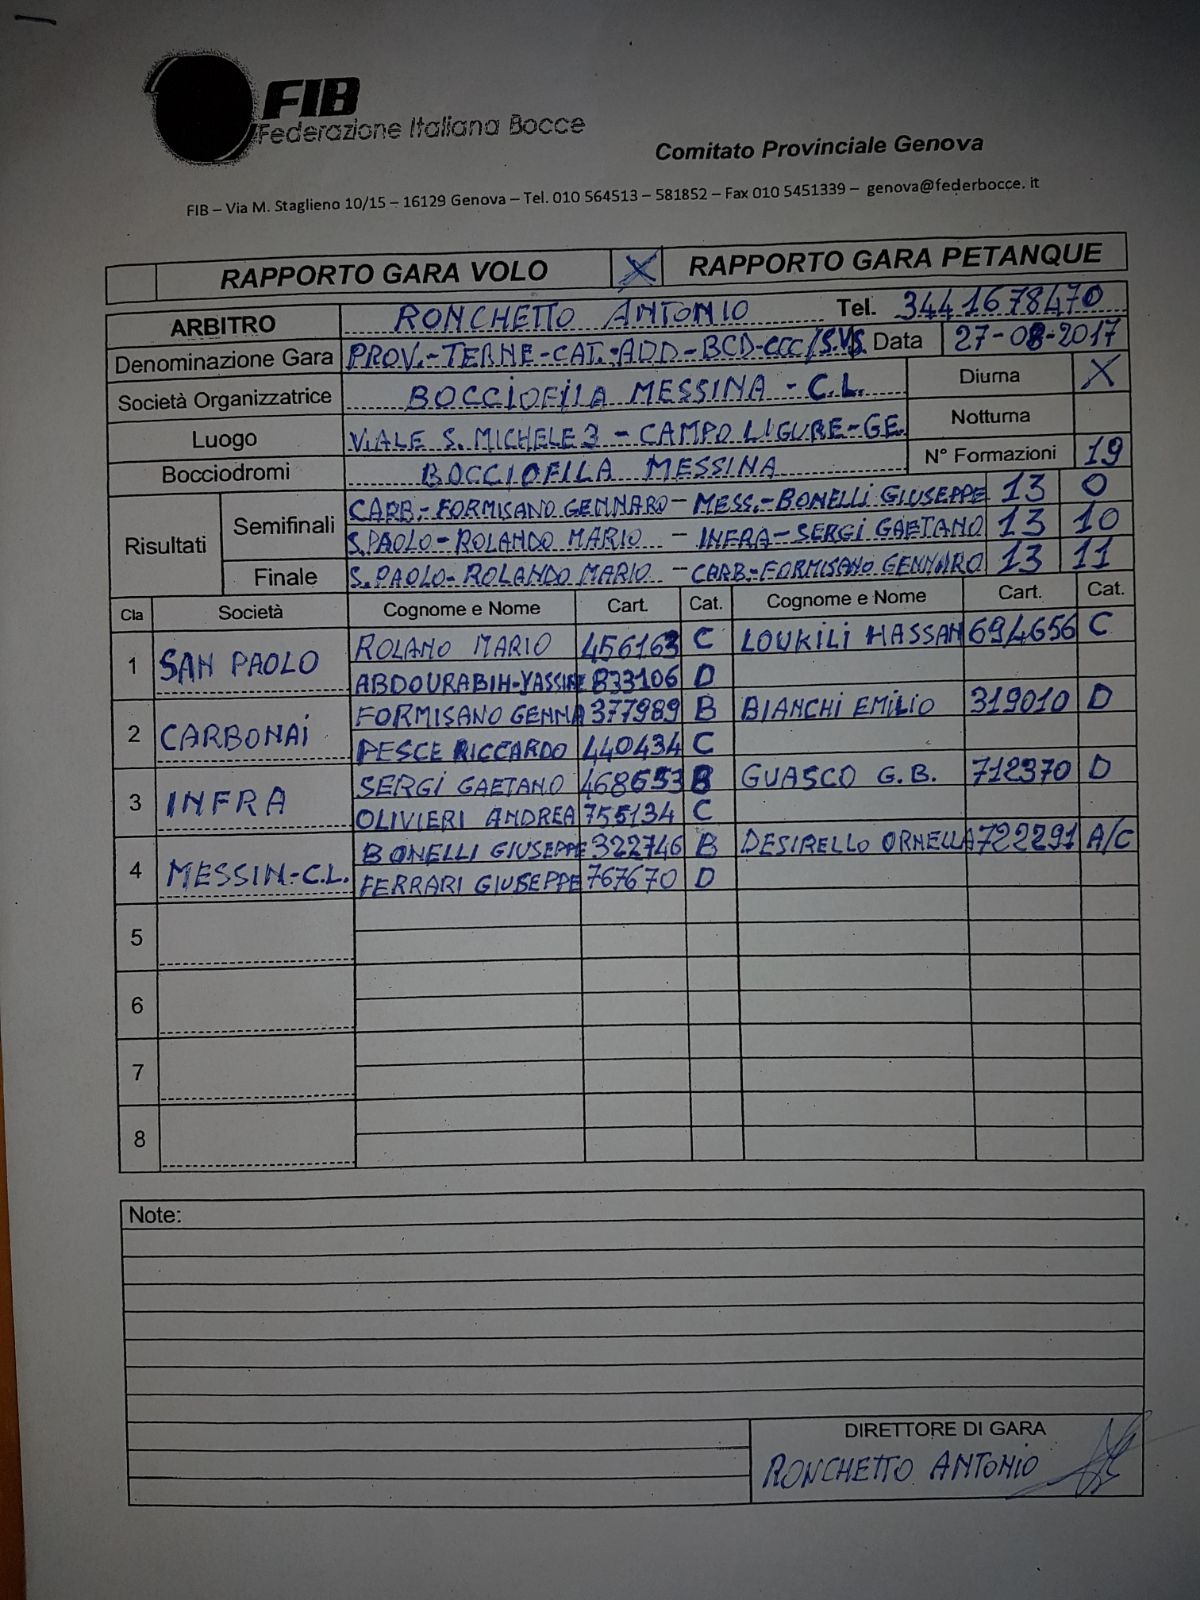 FIB
Federazione Italiana Bocce
Comitato Provinciale Genova
FIB – Via M. Staglieno 10/15 – 16129 Genova – Tel. 010 564513 – 581852 – Fax 010 5451339 – genova@federbocce.it
RAPPORTO GARA VOLO X RAPPORTO GARA PETANQUE
ARBITRO RONCHETTO ANTONIO Tel. 3441678470
Denominazione Gara PROV.-TERNE-CAT.-ADD-BCD-CCC/S.V.S. Data 27-08-2017
Società Organizzatrice BOCCIOFILA MESSINA - C.L. Diurna X
Luogo VIALE S. MICHELE 3 - CAMPO LIGURE-GE. Notturna
Bocciodromi BOCCIOFILA MESSINA N° Formazioni 19
Risultati Semifinali CARB.-FORMISANO GENNARO - MESS.-BONELLI GIUSEPPE 13 0
S.PAOLO-ROLANDO MARIO - INFRA-SERGI GAETANO 13 10
Finale S.PAOLO-ROLANDO MARIO - CARB.-FORMISANO GENNARO 13 11
Cla Società Cognome e Nome Cart. Cat. Cognome e Nome Cart. Cat.
1 SAN PAOLO ROLANO MARIO 456163 C LOUKILI HASSAN 694656 C
ABDOURABIH-YASSINE 833106 D
2 CARBONAI FORMISANO GENNA 377989 B BIANCHI EMILIO 319010 D
PESCE RICCARDO 440434 C
3 INFRA SERGI GAETANO 468653 B GUASCO G.B. 712370 D
OLIVIERI ANDREA 755134 C
4 MESSIN-C.L. BONELLI GIUSEPPE 322746 B DESIRELLO ORNELLA 722291 A/C
FERRARI GIUSEPPE 767670 D
5
6
7
8
Note:
DIRETTORE DI GARA
RONCHETTO ANTONIO